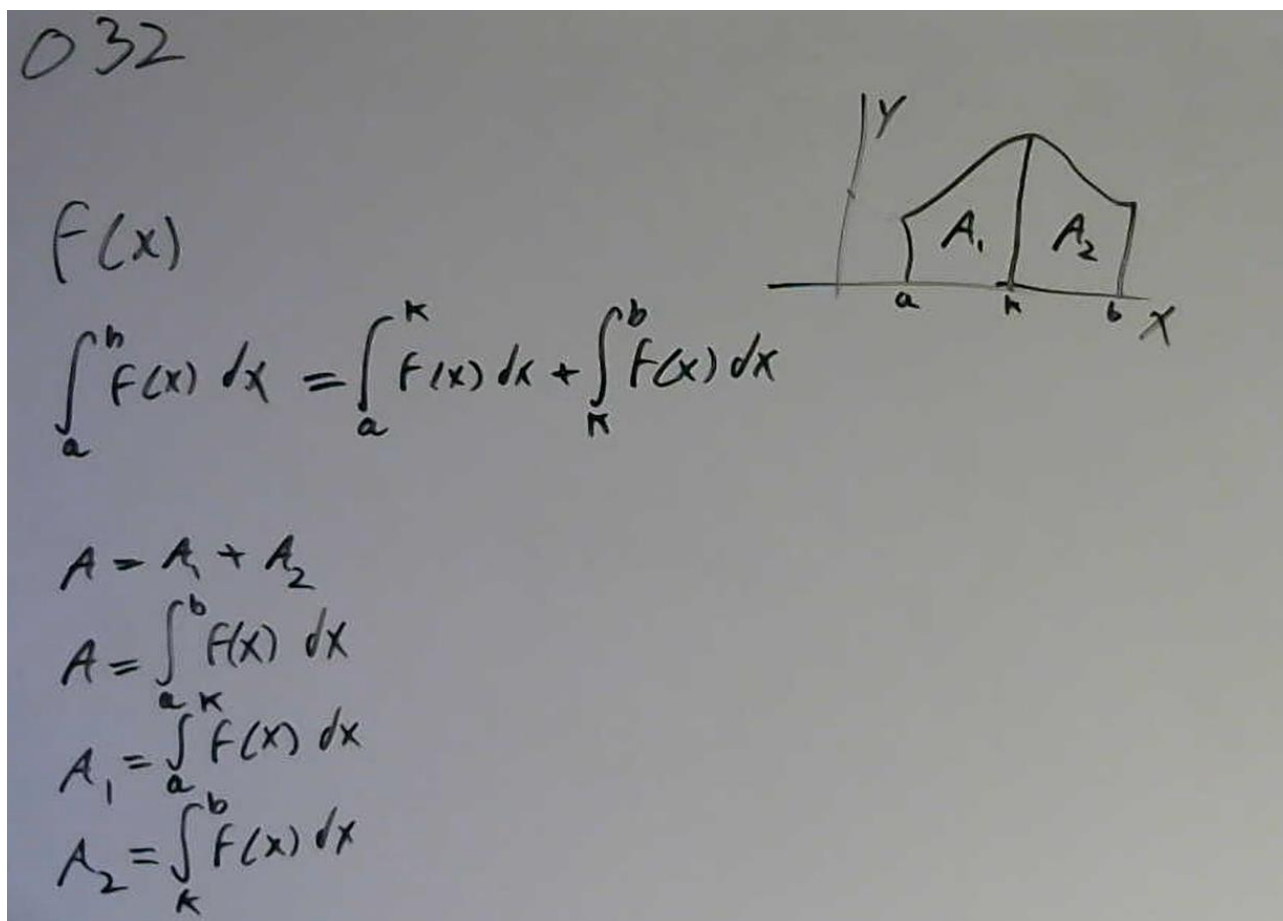 032
Y
A₁ A₂
a k b X
F(x)
∫ₐᵇ F(x) dx = ∫ₐᵏ F(x) dx + ∫ₖᵇ F(x) dx
A = A₁ + A₂
A = ∫ₐᵇ F(x) dx
A₁ = ∫ₐᵏ F(x) dx
A₂ = ∫ₖᵇ F(x) dx